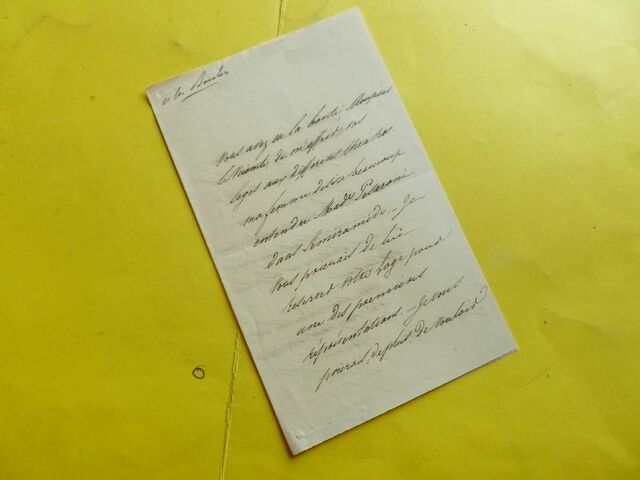 Vous avez eu la bonté Monsieur
le Vicomte, de m'offrir, vos
loges aux différents théatres
ma femme desire beaucoup
entendre Made
dans Semiramide. - Je
vous prierais de lui
reserver votre loge pour
une des premieres
réprésentations. - Je vous
prierais, de plus, de vouloir